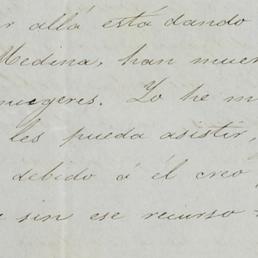 r allá está dando
Medina, han muer
mugeres. Yo he m
les pueda asistir,
debido á él creo
sin ese recurso